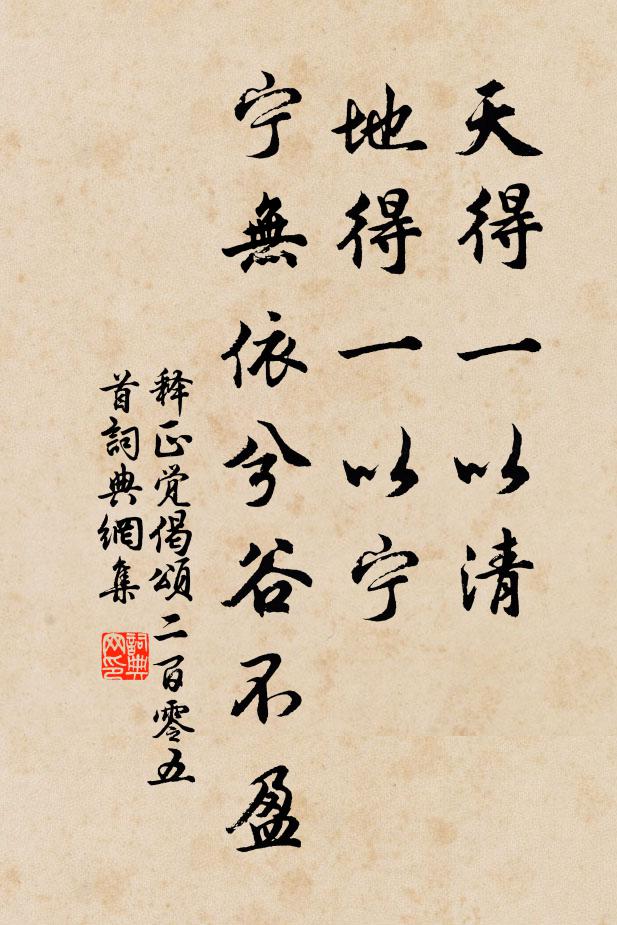 天得一以清
地得一以宁
宁無依兮谷不盈
释正觉偈頌二百零五
首詞典網集
詞典网印